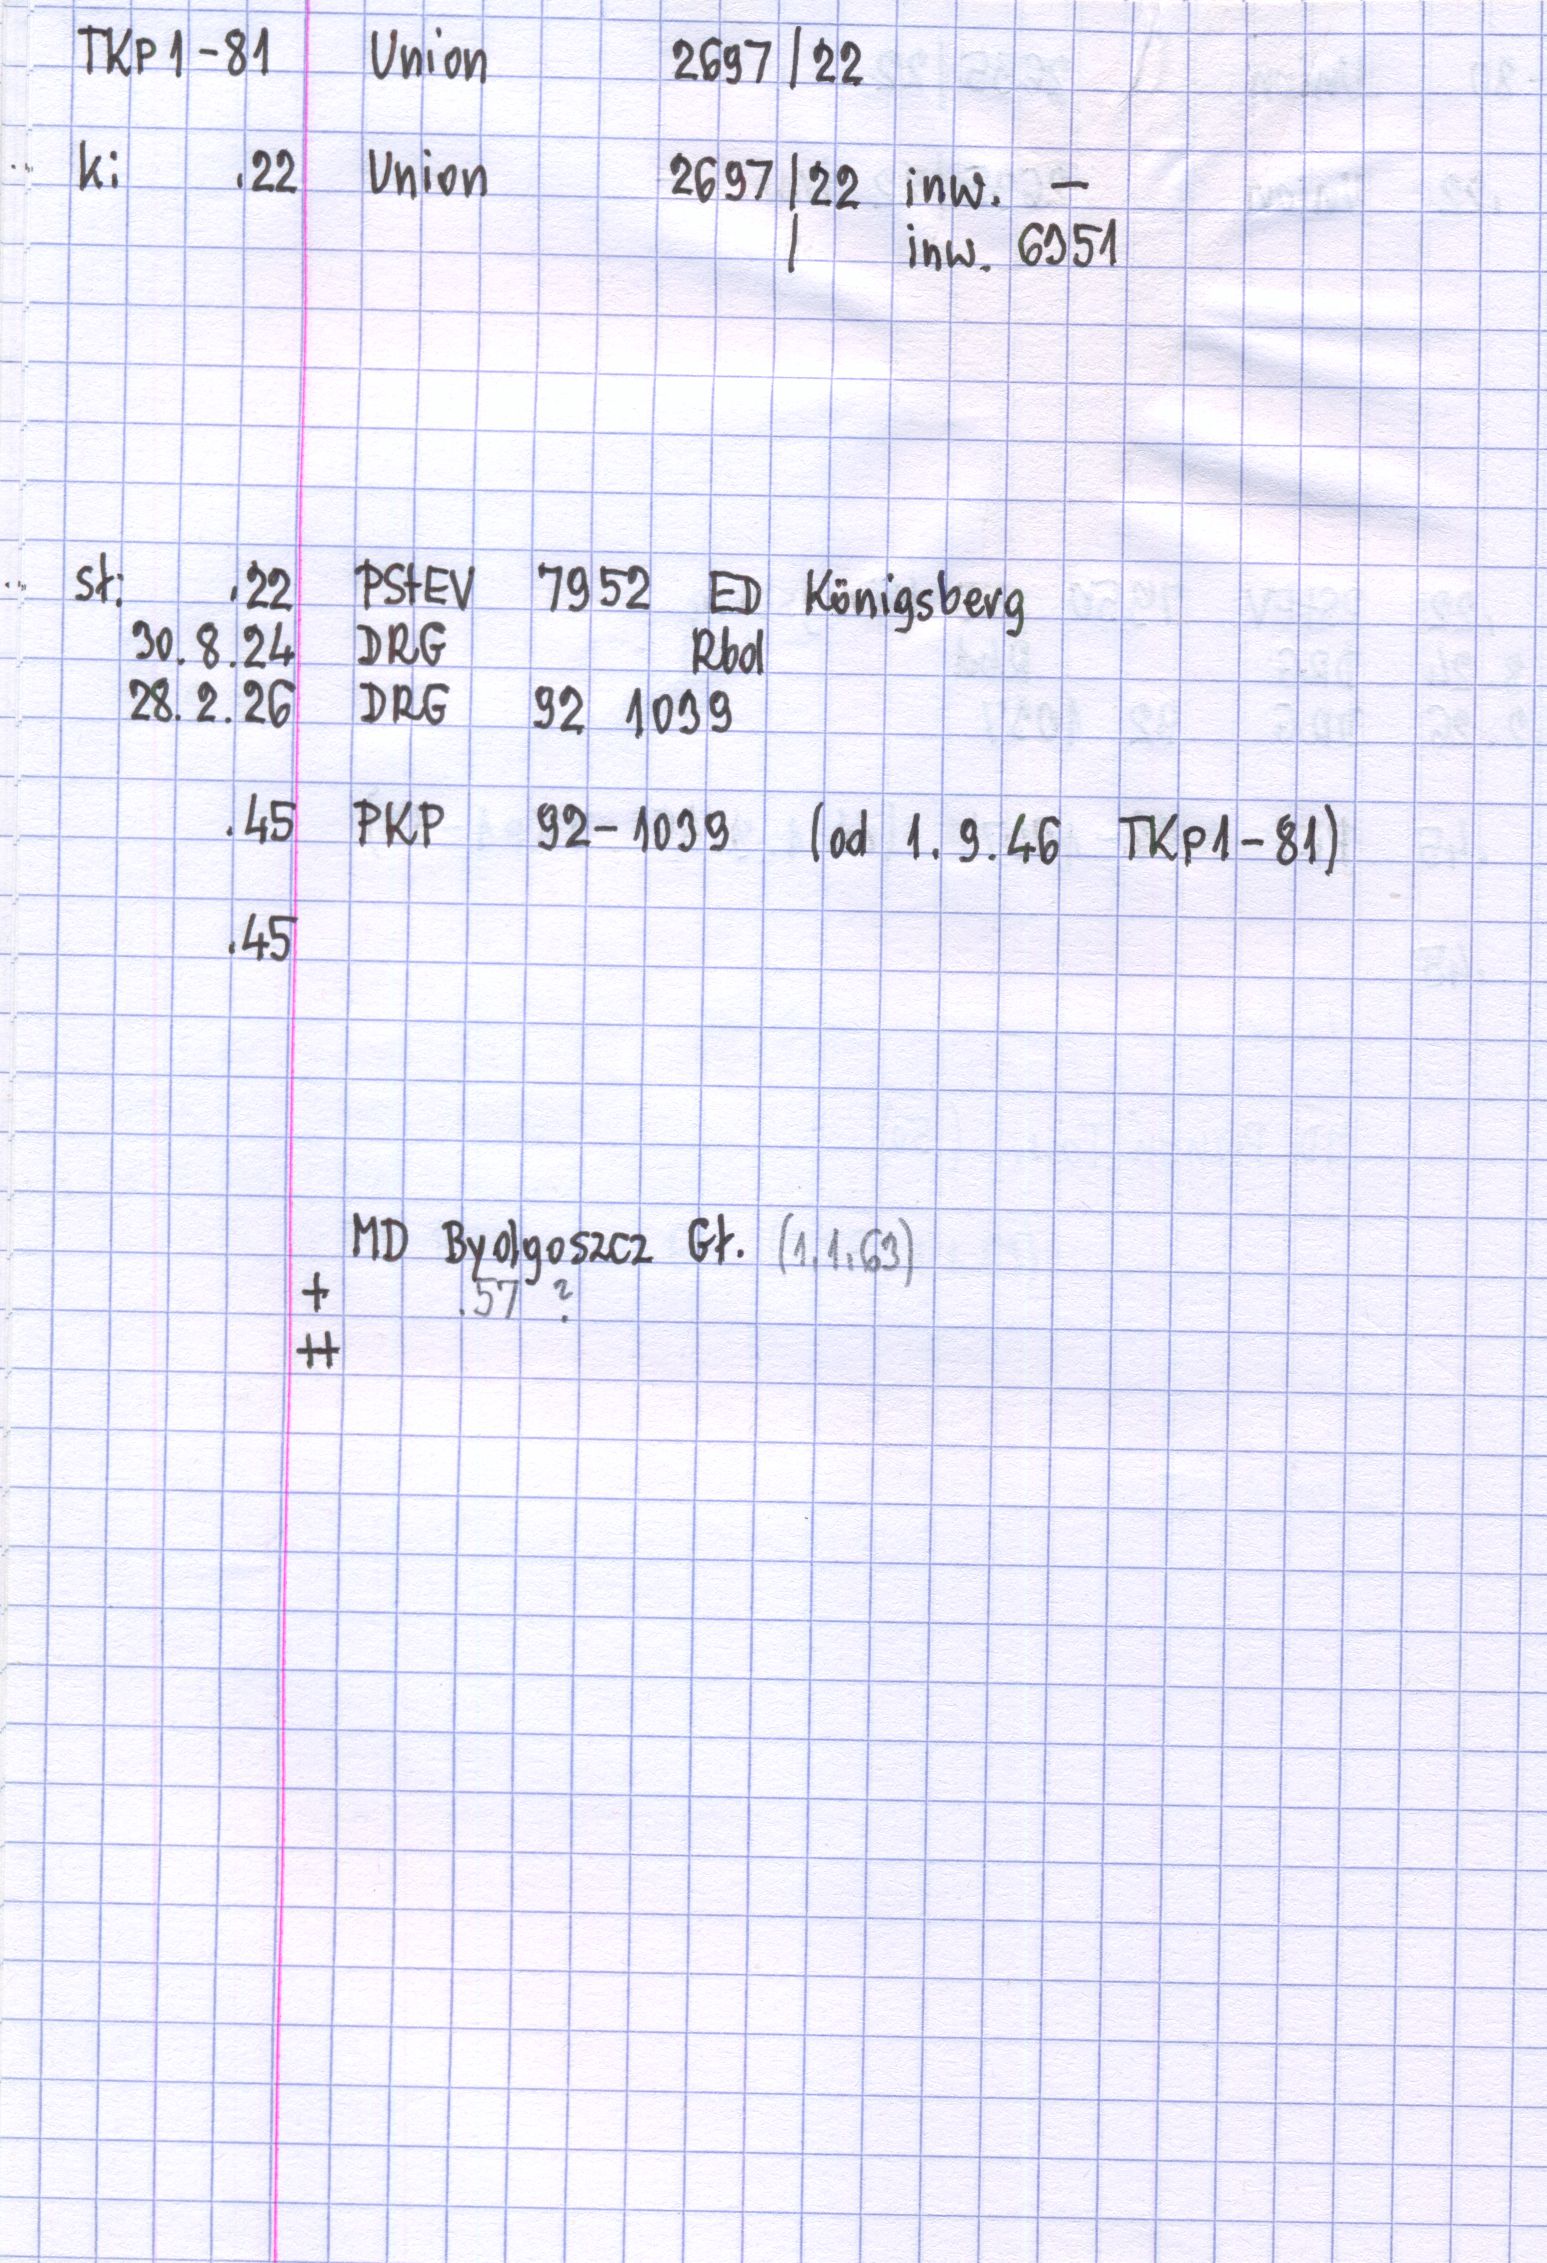 TKp1-81 Union 2697/22
k: .22 Union 2697/22 inw. -
/ inw. 6951
st: .22 PStEV 7952 ED Königsberg
30.8.24 DRG Rbd
28.2.26 DRG 92 1039
.45 PKP 92-1039 (od 1.9.46 TKp1-81)
.45
MD Bydgoszcz Gł. (1.1.63)
+ .57 ?
++